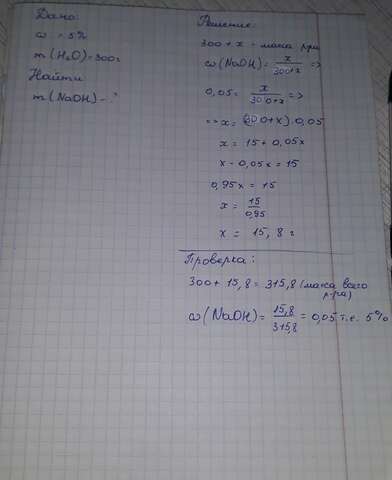 Дано:
ω = 5%
m(H₂O) = 300г
Найти
m(NaOH) - ?
Решение:
300 + x - масса р-ра
ω(NaOH) = x/300+x =>
0,05 = x/300+x =>
=> x = (300+x)·0,05
x = 15 + 0,05x
x - 0,05x = 15
0,95x = 15
x = 15/0,95
x = 15,8 г
Проверка:
300 + 15,8 = 315,8 (масса всего
р-ра)
ω(NaOH) = 15,8/315,8 = 0,05 т.е. 5%